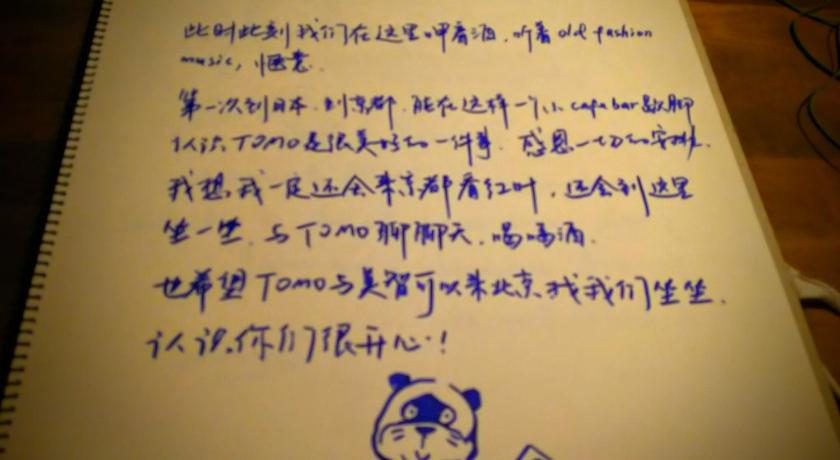 此时此刻我们在这里呷着酒,听着old fashion
music,惬意.
第一次到日本,到京都,能在这样一个小 capa bar 歇脚
认识TOMO是很美好的一件事.感恩一切的安排.
我想,我一定还会来京都看红叶,还会到这里
坐一坐,与TOMO聊聊天,喝喝酒.
也希望TOMO与美智可以来北京找我们坐坐.
认识你们很开心!